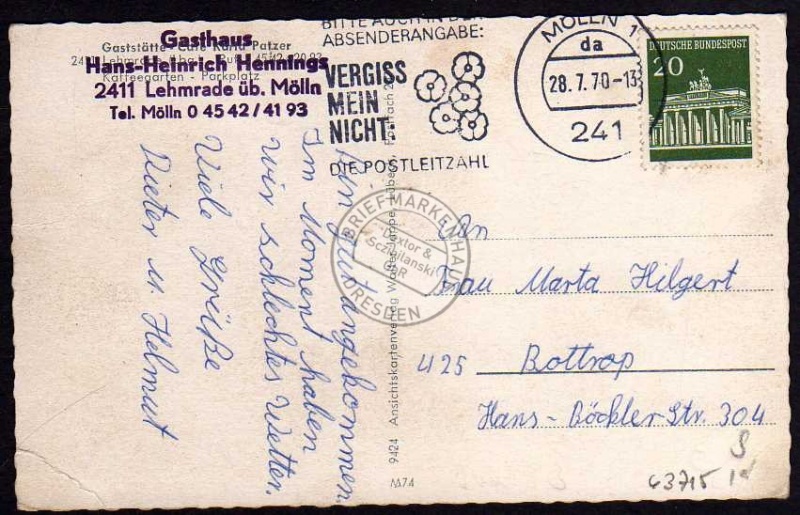 Gasthaus
Hans-Heinrich Hennings
2411 Lehmrade üb. Mölln
Tel. Mölln 0 45 42/41 93
Gaststätte - Café Karla Patzer
Kaffeegarten - Parkplatz
BITTE AUCH IN DER
ABSENDERANGABE:
VERGISS
MEIN
NICHT:
DIE POSTLEITZAHL
MÖLLN 1
da
28.7.70-13
241
DEUTSCHE BUNDESPOST
20
Bin gut angekommen
Im Moment haben
wir schlechtes Wetter.
Viele Grüße
Dieter u. Helmut
9424 Ansichtskartenverlag
M74
An
Frau Marta Hilgert
425 Bottrop
Hans-Böckler Str. 304
BRIEFMARKENHAUS
DRESDEN
63715